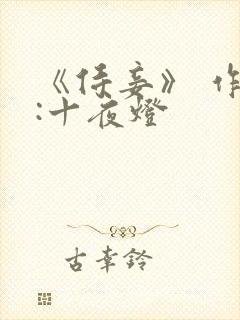 《侯妾》 作
:十夜燈
古幸鈴